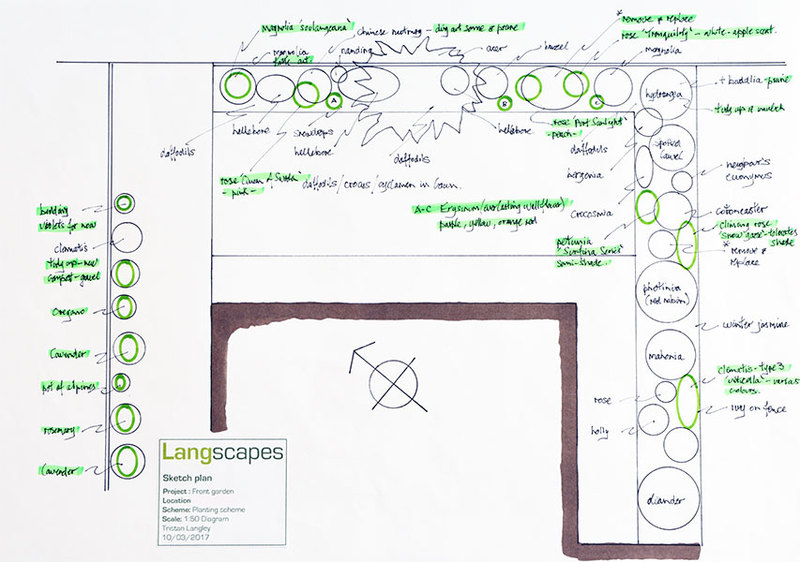 Magnolia 'soulangeana'
magnolia
Chinese nutmeg - dig out some or prune
nandina
acer
hazel
* remove & replace
rose 'Tranquility' - white - apple scent.
magnolia
A
B
C
hydrangea
+ buddlia - prune
tidy up & mulch
daffodils
hellebore
snowdrops
hellebore
daffodils
hellebore
rose 'Port Sunlight'
- peach -
daffodils
spotted laurel
bergenia
euonymus
rose 'Queen of Sweden'
- pink -
daffodils / crocus / cyclamen in lawn.
A-C Erysimum (everlasting wallflower)
purple, yellow, orange red
crocosmia
cotoneaster
climbing rose
'Snow goose' - tolerates shade
* remove & replace
petunia
'Surfinia Series'
semi-shade.
bedding
violets for now
clematis
tidy up - new
compost - gravel
oregano
Lavender
pot of alpines
rosemary
Lavender
photinia
(red robin)
winter jasmine
mahonia
clematis - type 3
'viticella' - various colours.
rose
ivy on fence
holly
oliander
Langscapes
Sketch plan
Project : Front garden
Location
Scheme: Planting scheme
Scale: 1:50 Diagram
Tristan Langley
10/03/2017